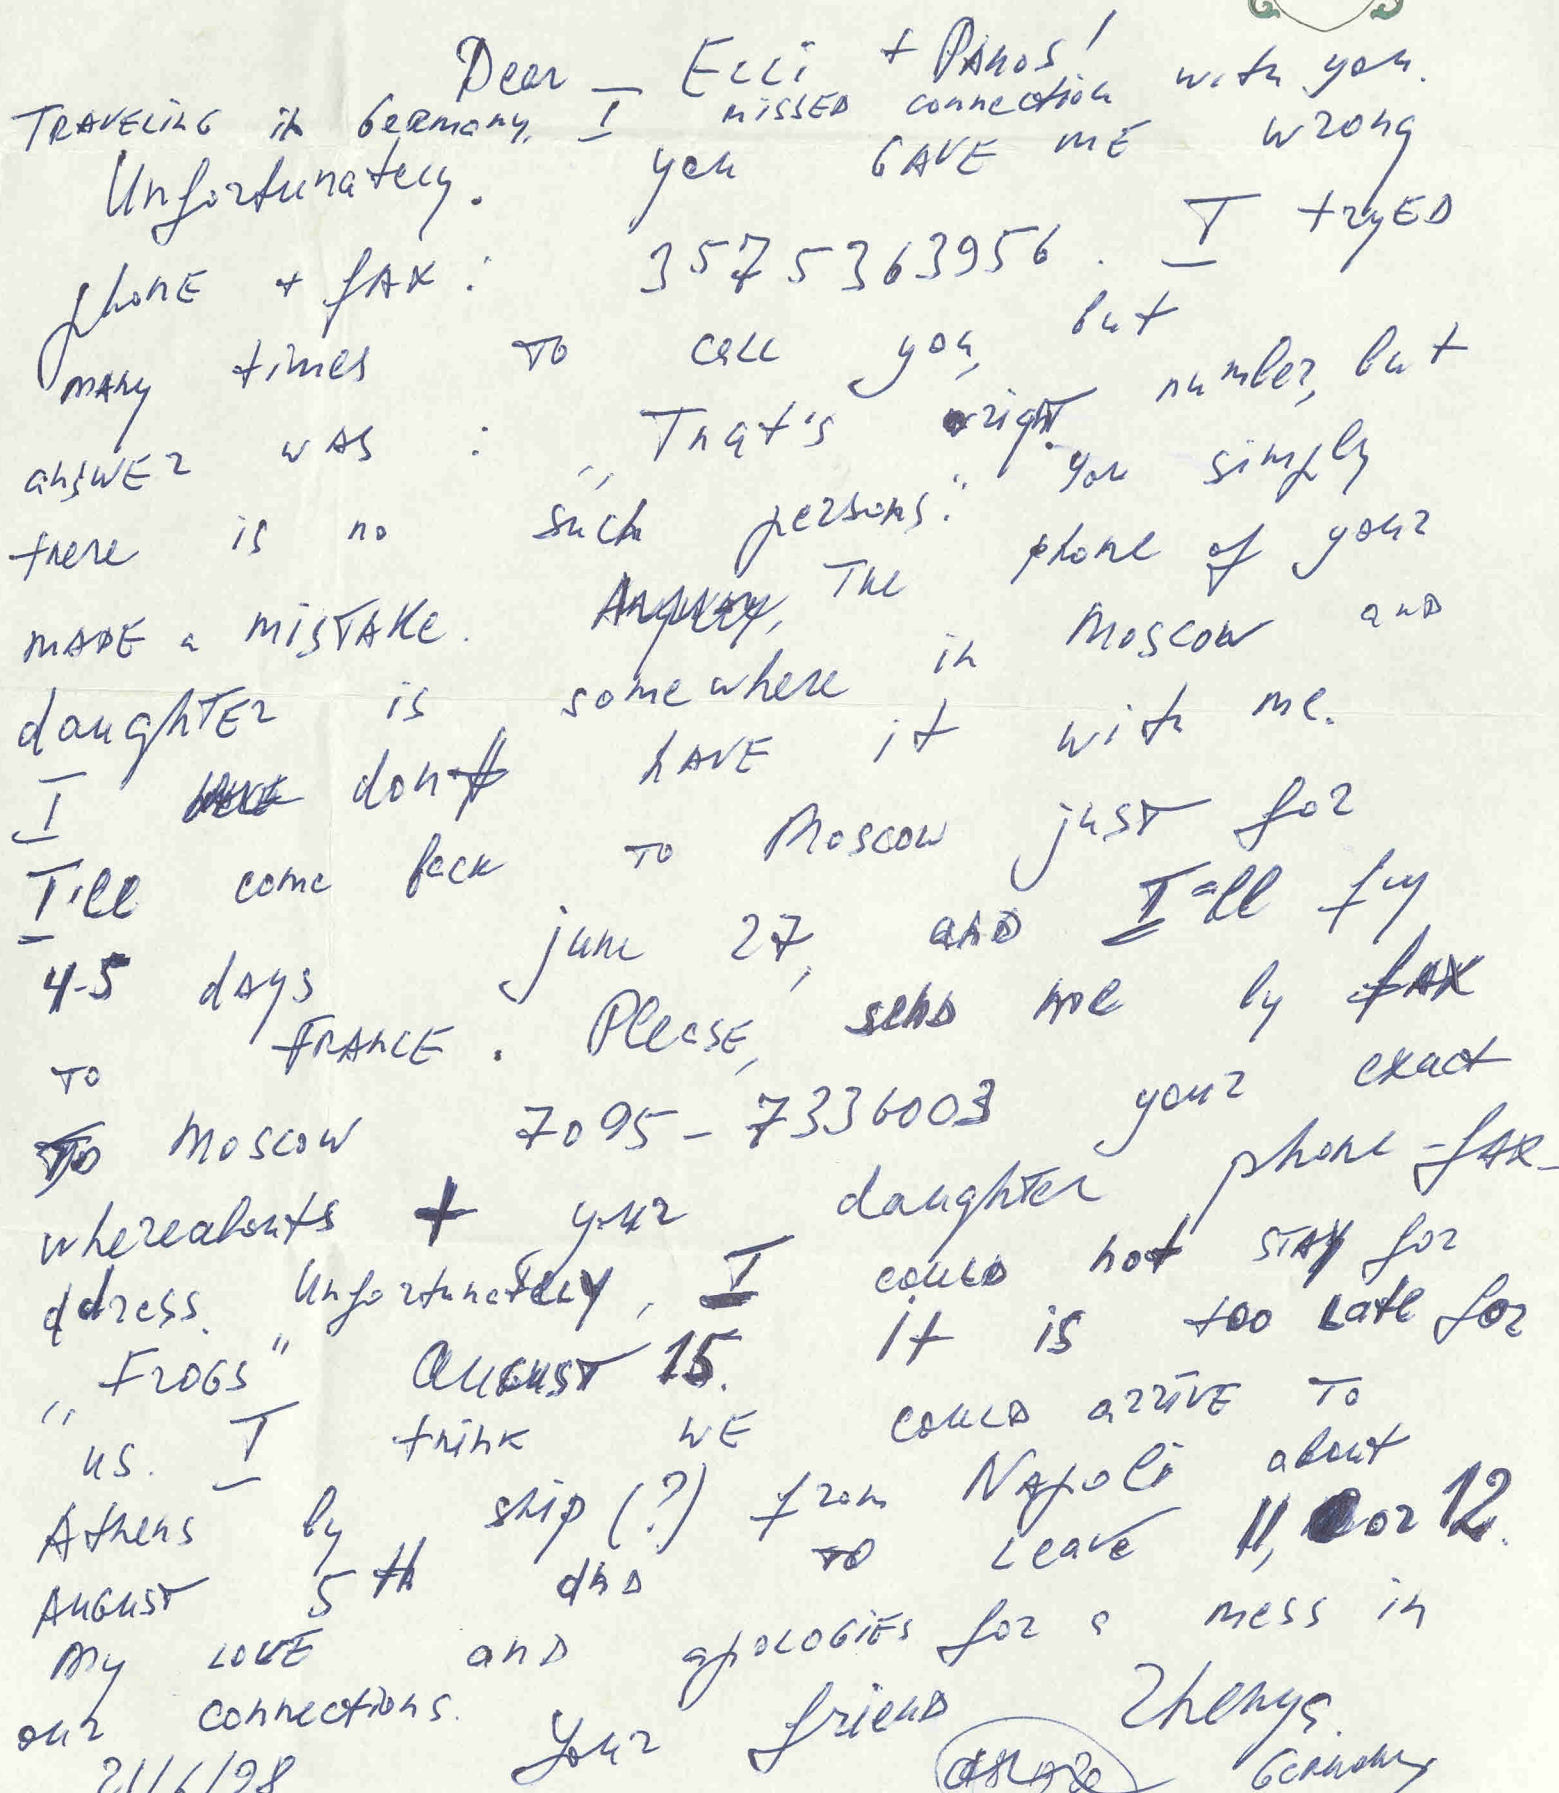 Dear Elli + Panos!
TRAVELING in Germany, I missED connection with you.
Unfortunately. you GAVE mE wrong
phonE + fAX: 3575363956. I tryED
many times TO call you, but
answer wAS : „That's right number, but
there is no such persons." You simply
mADE a misTAKe. The phone of your
daughTEr is somewhere in Moscow anD
I don't hAVE it with me.
I'll come back TO Moscow jusT for
4-5 days june 27, anD I'll fly
TO FRANCE. PleaSE, senD me by fAX
TO Moscow 7095-7336003 your exact
whereabouts + your daughTer phone-fAX-
address. Unfortunately, I coulD not STAY for
„FroGS" AuGUST 15. It is too Late for
us. I think wE coulD arrIVE TO
Athens by ship (?) from Napoli about
AuGusT 5th anD TO Leave 11, or 12.
My LOVE anD apoLOGIEs for a mess in
our connections. Your frienD Zhenya.
21/6/98 Germany